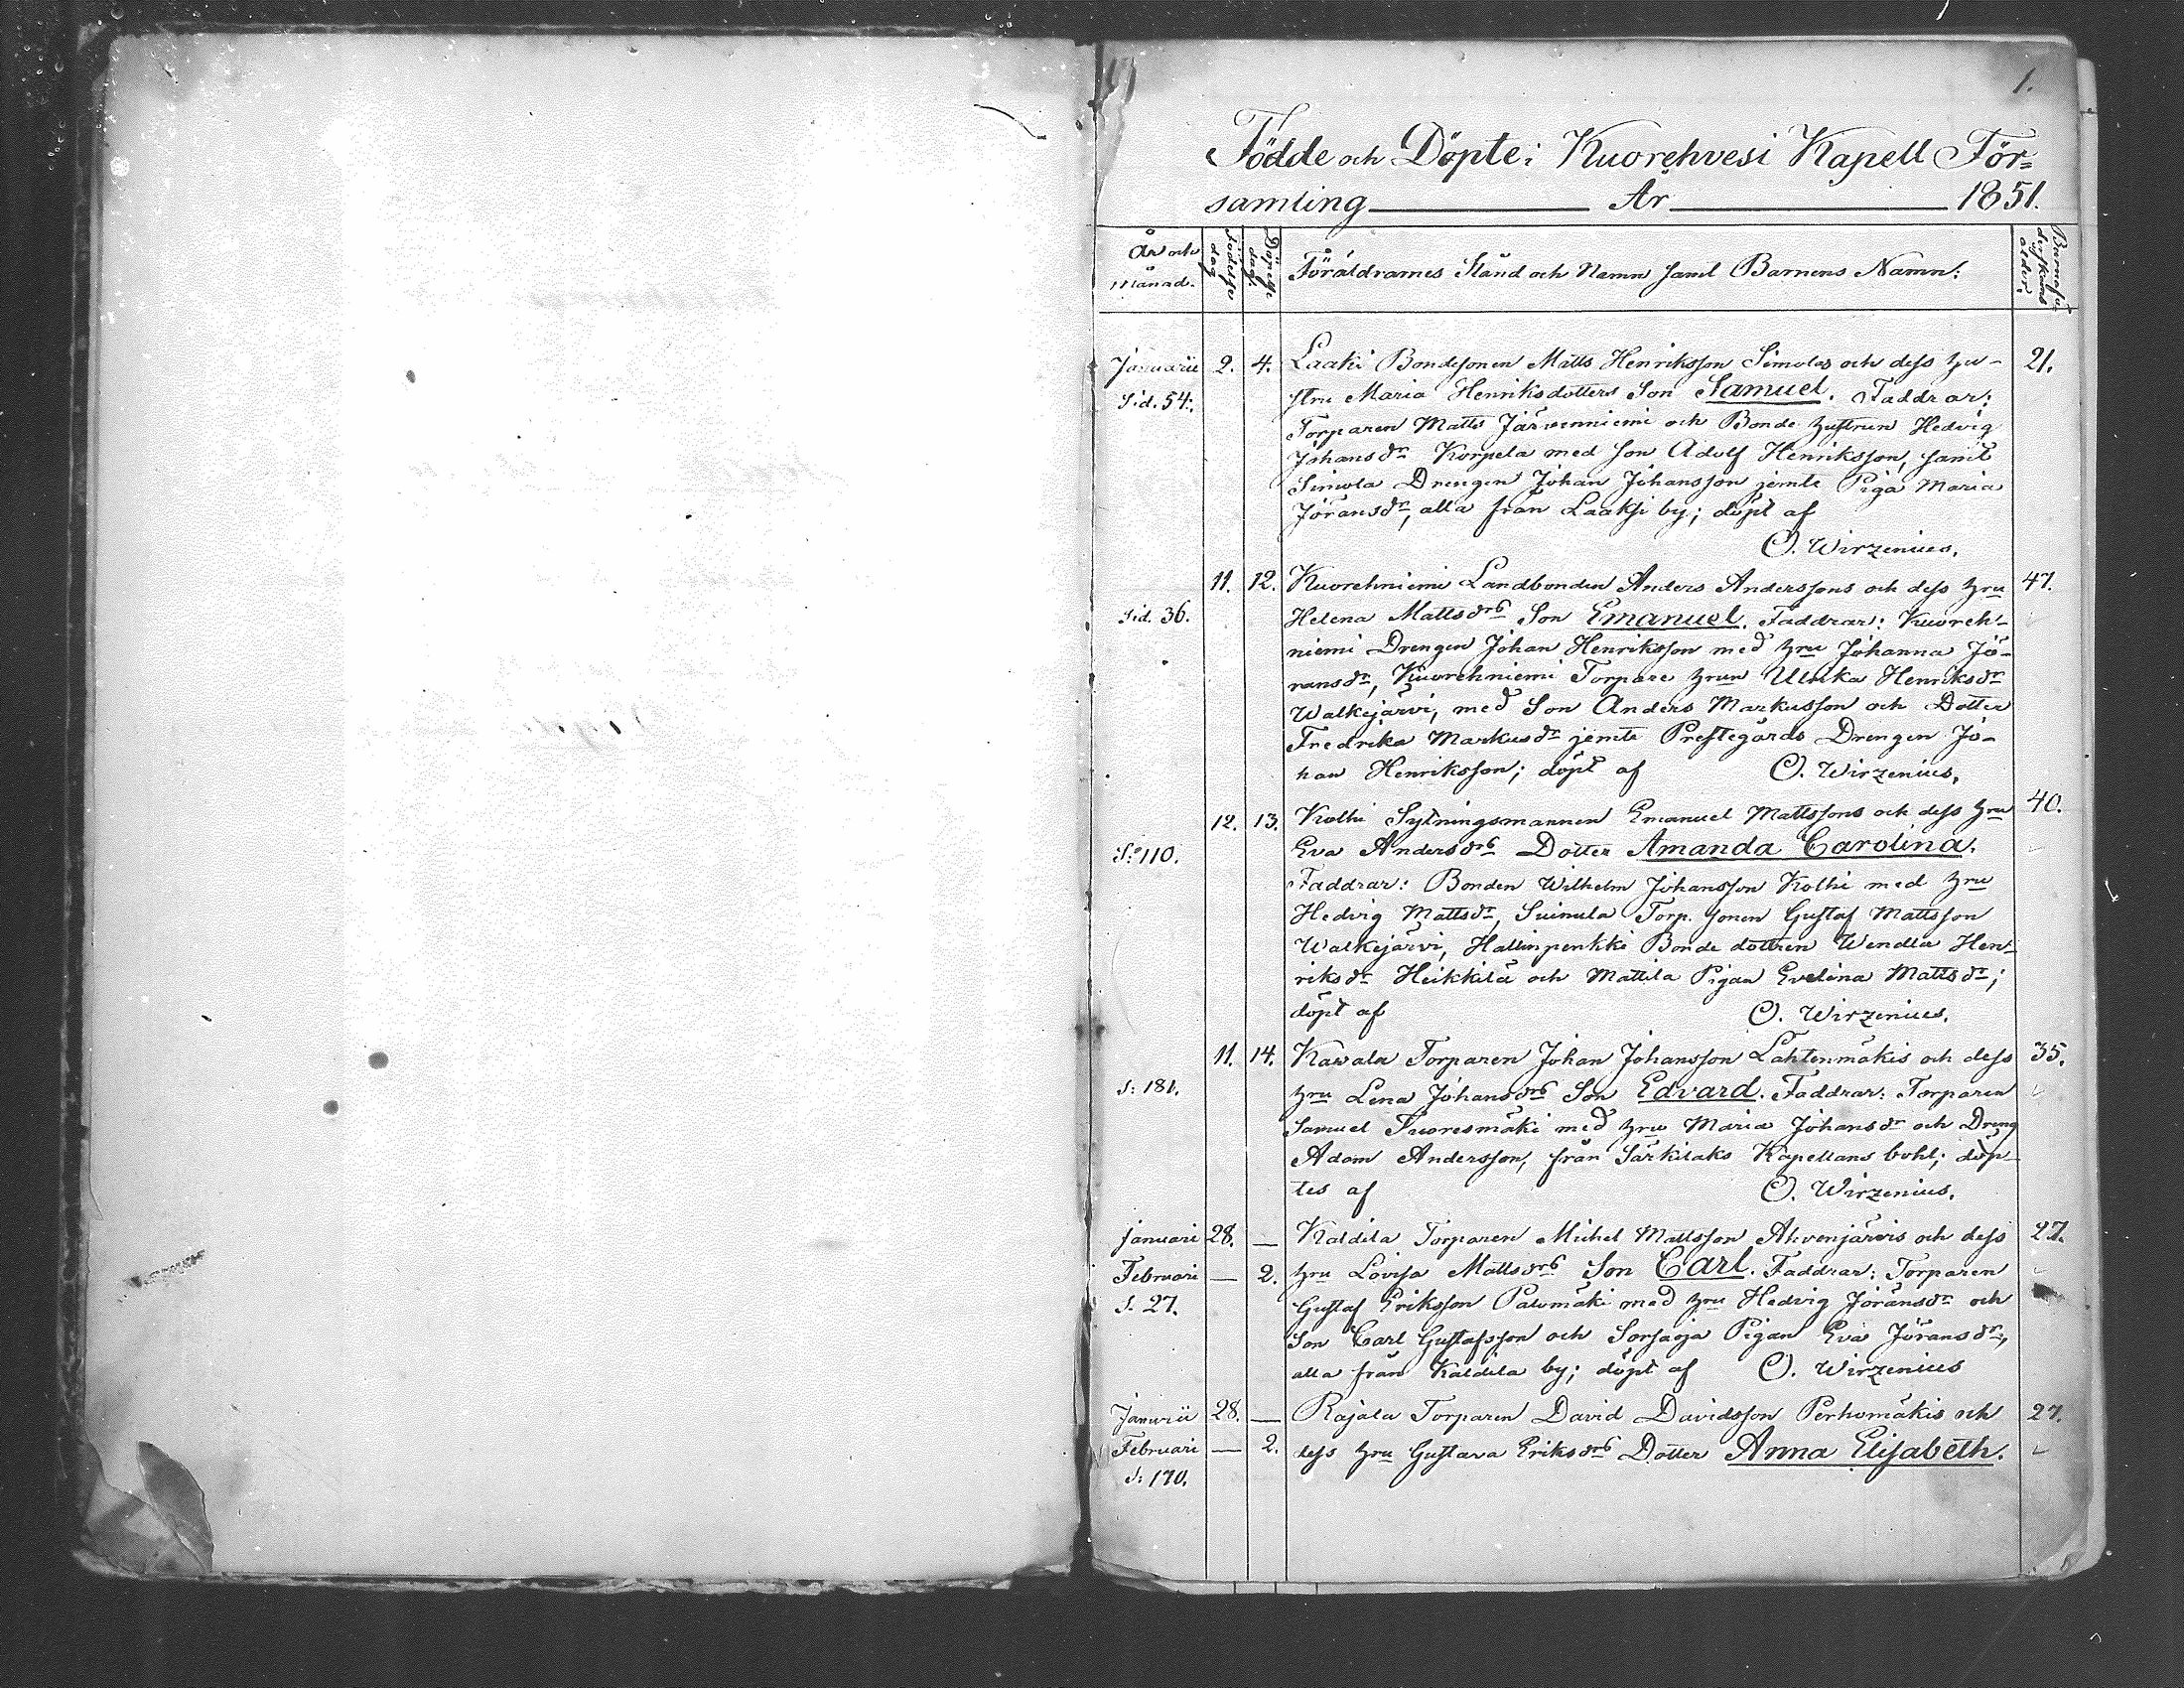 1.
Födde och Döpte i Kuorehvesi Kapell För=
samling År 1851.
År och Månad. Födelse dag Döpelse dag. Föräldrarnes Stånd och Namn samt Barnens Namn: Barnaföderskans ålder.
Januarii 2. 4. Laaki Bondesonen Matts Henriksson Simolas och dess hu- 21.
Sid. 54. stru Maria Henriksdotters Son Samuel. Faddrar:
Torparen Matts Järvenniemi och Bonde hustrun Hedvig
Johansdr Korpela med son Adolf Henriksson, samt
Simola Drengen Johan Johansson jemte Piga Maria
Jöransdr, alla från Laaksi by; döpt af
O. Wirzenius.
11. 12. Kuorehniemi Landbonden Anders Anderssons och dess hru 47.
Sid. 36. Helena Mattsdrs Son Emanuel. Faddrar: Kuoreh-
niemi Drengen Johan Henriksson med hru Johanna Jö-
ransdr, Kuorehniemi Torpare hrun Ulrika Henriksdr
Walkejärvi, med Son Anders Markusson och Dotter
Fredrika Markusdr jemte Prestegårds Drengen Jo-
han Henriksson; döpt af O. Wirzenius.
12. 13. Kolhi Sytningsmannen Emanuel Mattssons och dess hru 40.
S:o 110. Eva Andersdrs Dotter Amanda Carolina.
Faddrar: Bonden Wilhelm Johansson Kolhi med hru
Hedvig Mattsdr, Suinula Torp. sonen Gustaf Mattsson
Walkejärvi, Hallinpenkki Bonde dottren Wendla Hen-
riksdr Heikkilä och Mattila Pigan Evelina Mattsdr;
döpt af O. Wirzenius.
11. 14. Kawala Torparen Johan Johansson Lahtenmäkis och dess 35.
S: 181. hru Lena Johansdrs Son Edvard. Faddrar: Torparen
Samuel Tuoresmäki med hru Maria Johansdr och Dreng
Adam Andersson, från Särkilaks Kapellans bohl; döp-
tes af O. Wirzenius.
Januari 28. — Kaldila Torparen Michel Mattsson Ahvenjärvis och dess 27.
Februari — 2. hru Lovisa Mattsdrs Son Carl. Faddrar: Torparen
S. 27. Gustaf Eriksson Palomäki med hru Hedvig Jöransdr och
Son Carl Gustafsson och Sorsaoja Pigan Eva Jöransdr,
alla från Kaldila by; döpt af O. Wirzenius
Januarii 28. — Rajala Torparen David Davidsson Perhomäkis och 27.
Februari — 2. dess hru Gustava Eriksdrs Dotter Anna Elisabeth.
S: 170.